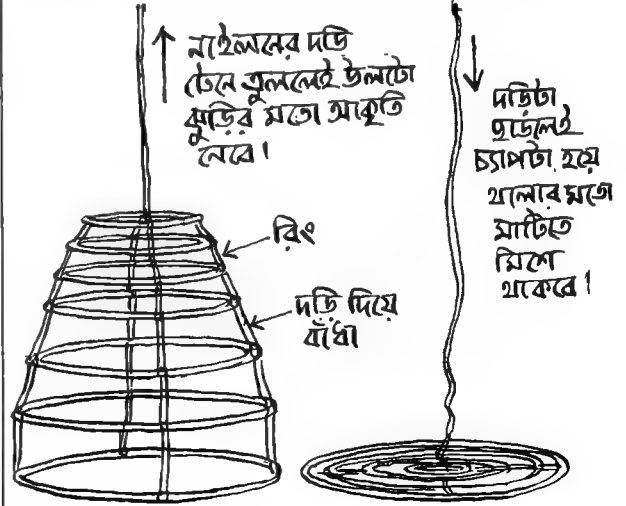 নাইলনের দড়ি
টেনে তুললেই উলটো
ঝুড়ির মতো আকৃতি
নেবে।
রিং
দড়ি দিয়ে
বাঁধা
দড়িটা
ছাড়লেই
চ্যাপটা হয়ে
থালার মতো
মাটিতে
মিশে
থাকবে!